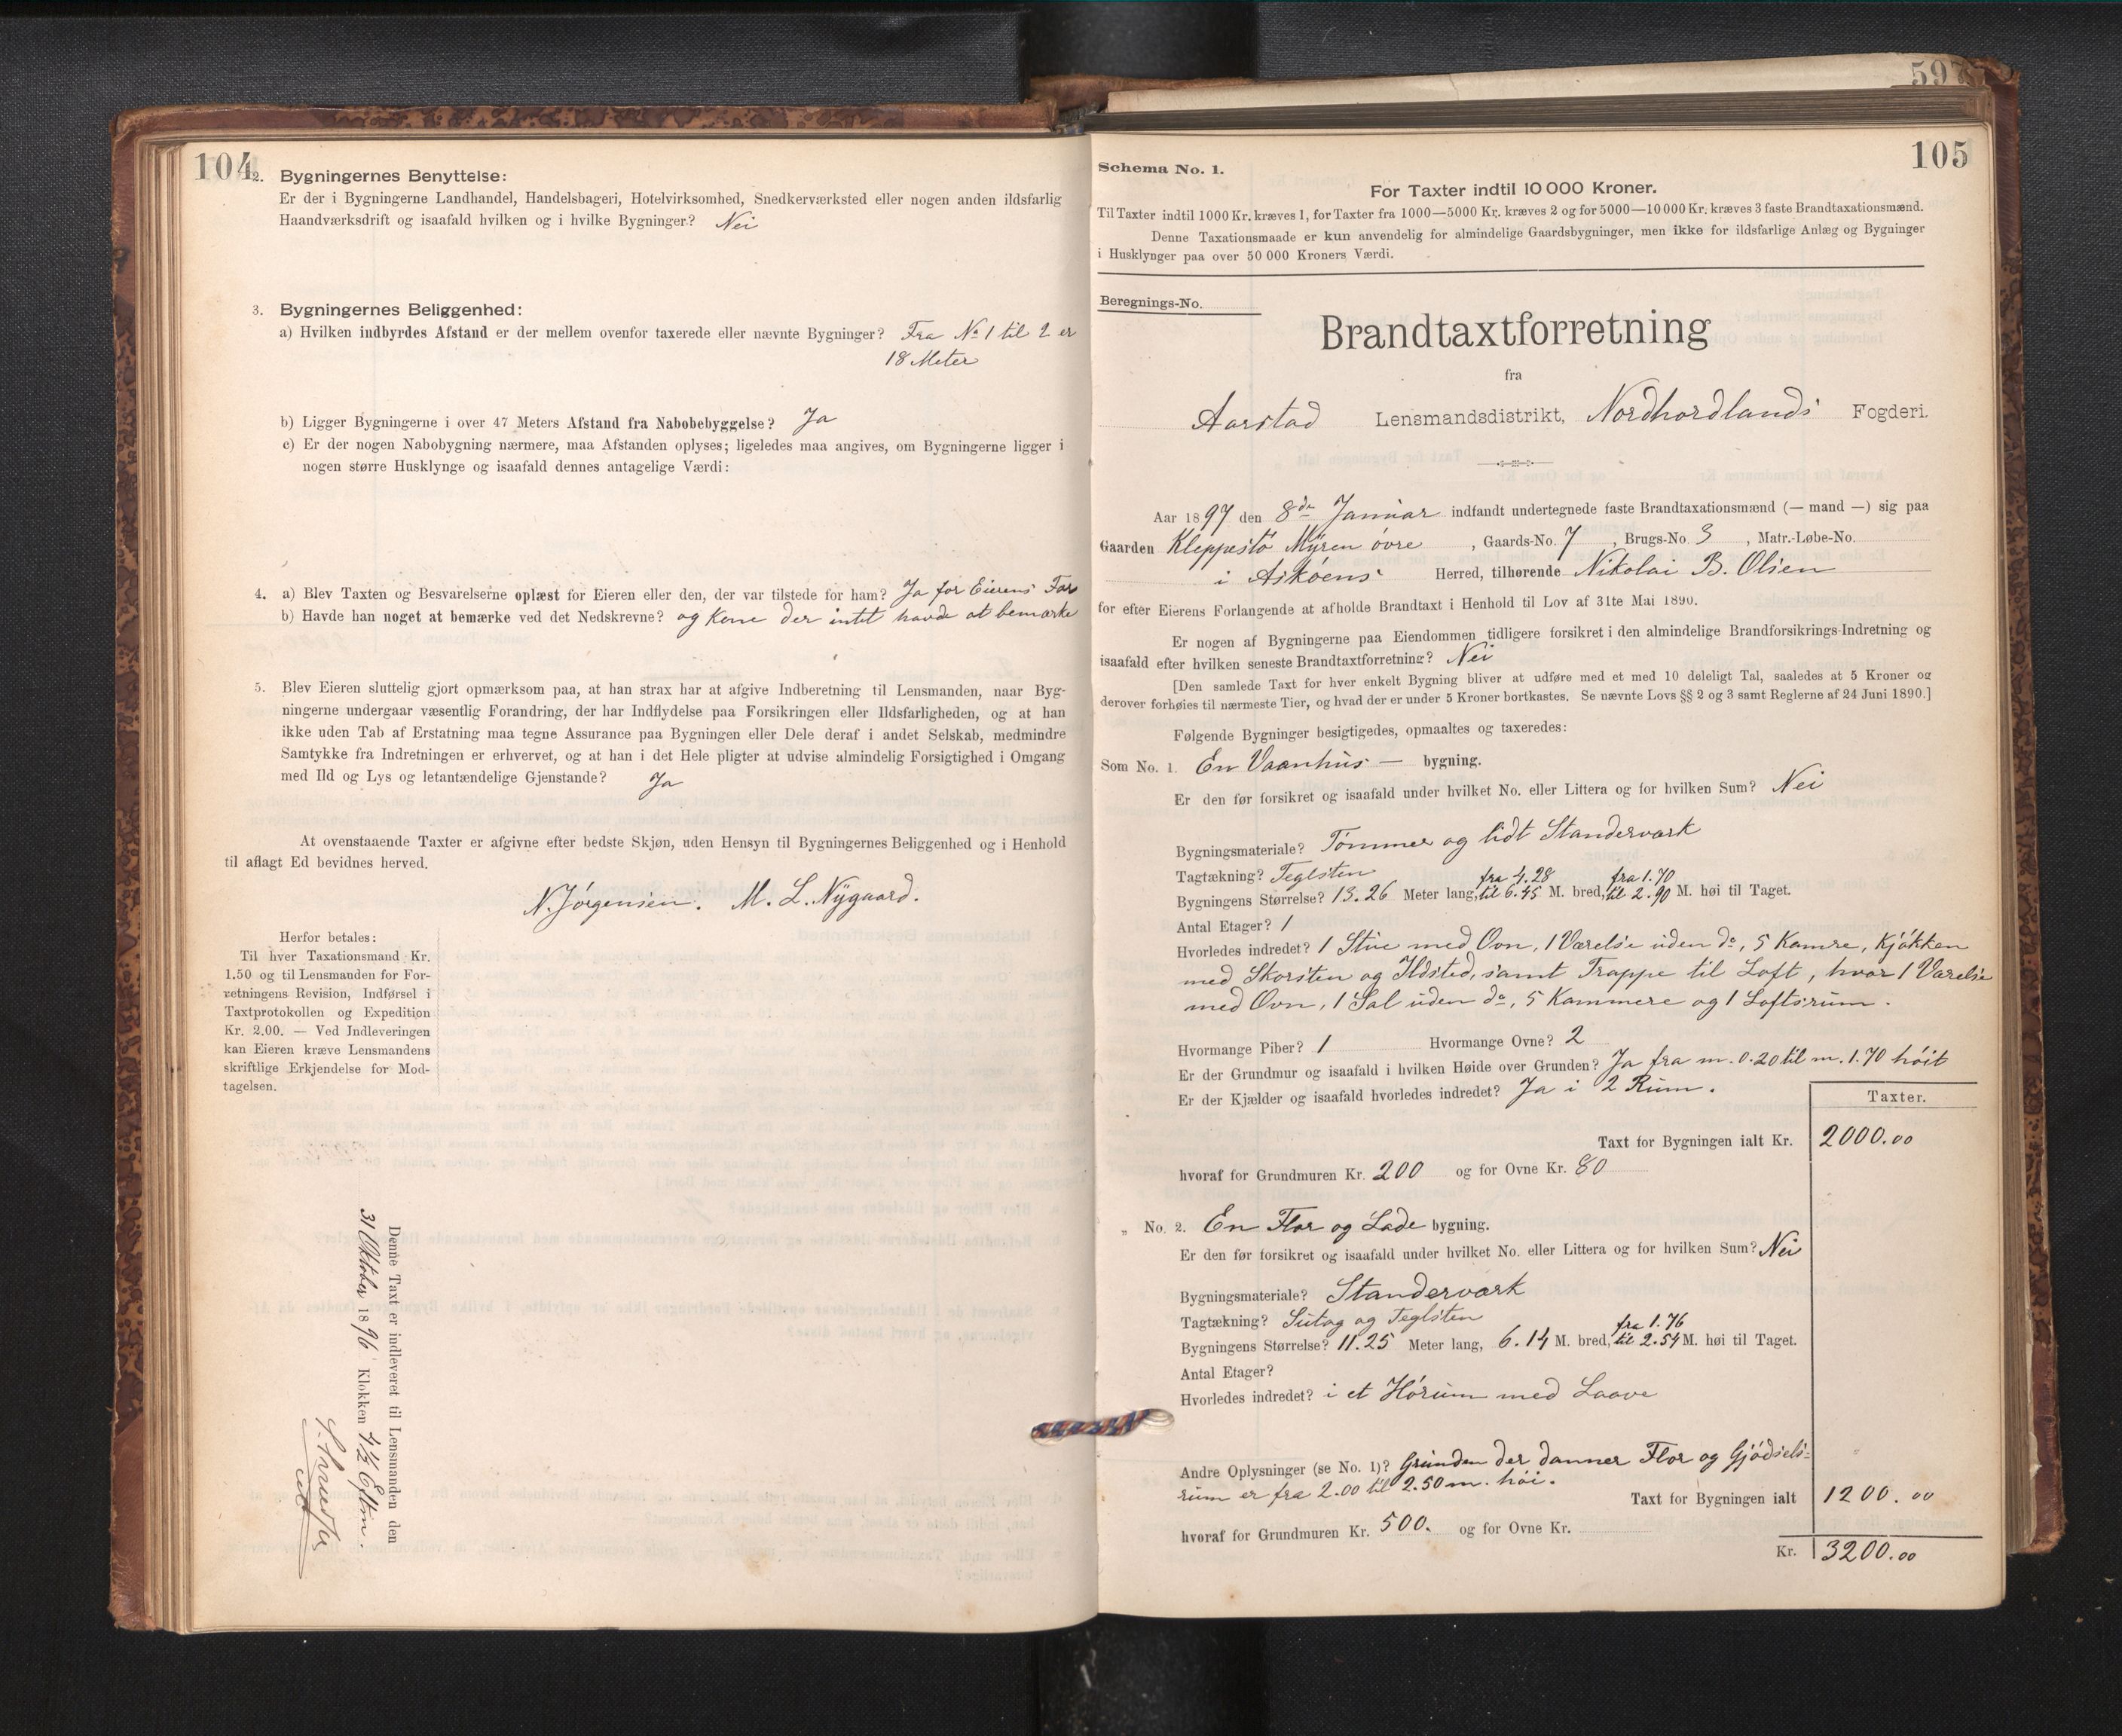 104
2. Bygningernes Benyttelse:
Er der i Bygningerne Landhandel, Handelsbageri, Hotelvirksomhed, Snedkerværksted eller nogen anden ildsfarlig
Haandværksdrift og isaafald hvilken og i hvilke Bygninger? Nei
3. Bygningernes Beliggenhed:
a) Hvilken indbyrdes Afstand er der mellem ovenfor taxerede eller nævnte Bygninger? Fra No 1 til 2 er
18 Meter
b) Ligger Bygningerne i over 47 Meters Afstand fra Nabobebyggelse? Ja
c) Er der nogen Nabobygning nærmere, maa Afstanden oplyses; ligeledes maa angives, om Bygningerne ligger i
nogen større Husklynge og isaafald dennes antagelige Værdi:
4. a) Blev Taxten og Besvarelserne oplæst for Eieren eller den, der var tilstede for ham? Ja for Eierens Far
b) Havde han noget at bemærke ved det Nedskrevne? og Kone der intet havde at bemærke
5. Blev Eieren sluttelig gjort opmærksom paa, at han strax har at afgive Indberetning til Lensmanden, naar Byg-
ningerne undergaar væsentlig Forandring, der har Indflydelse paa Forsikringen eller Ildsfarligheden, og at han
ikke uden Tab af Erstatning maa tegne Assurance paa Bygningen eller Dele deraf i andet Selskab, medmindre
Samtykke fra Indretningen er erhvervet, og at han i det Hele pligter at udvise almindelig Forsigtighed i Omgang
med Ild og Lys og letantændelige Gjenstande? Ja
At ovenstaaende Taxter er afgivne efter bedste Skjøn, uden Hensyn til Bygningernes Beliggenhed og i Henhold
til aflagt Ed bevidnes herved.
N. Jørgensen. M. L. Nygaard.
Herfor betales:
Til hver Taxationsmand Kr.
1.50 og til Lensmanden for For-
retningens Revision, Indførsel i
Taxtprotokollen og Expedition
Kr. 2.00. — Ved Indleveringen
kan Eieren kræve Lensmandens
skriftlige Erkjendelse for Mod-
tagelsen.
Denne Taxt er indleveret til Lensmanden den
31 Oktober 1896 Klokken 4½ Eftm.
597
105
Schema No. 1.
For Taxter indtil 10 000 Kroner.
Til Taxter indtil 1000 Kr. kræves 1, for Taxter fra 1000—5000 Kr. kræves 2 og for 5000—10000 Kr. kræves 3 faste Brandtaxationsmænd.
Denne Taxationsmaade er kun anvendelig for almindelige Gaardsbygninger, men ikke for ildsfarlige Anlæg og Bygninger
i Husklynger paa over 50 000 Kroners Værdi.
Beregnings-No.
Brandtaxtforretning
fra
Aarstad Lensmandsdistrikt, Nordhordlands Fogderi.
Aar 1897 den 8de Januar indfandt undertegnede faste Brandtaxationsmænd (— mand —) sig paa
Gaarden Kleppestø Myren øvre, Gaards-No. 7, Brugs-No. 3, Matr.-Løbe-No.
i Askøens Herred, tilhørende Nikolai B. Olsen
for efter Eierens Forlangende at afholde Brandtaxt i Henhold til Lov af 31te Mai 1890.
Er nogen af Bygningerne paa Eiendommen tidligere forsikret i den almindelige Brandforsikrings-Indretning og
isaafald efter hvilken seneste Brandtaxtforretning? Nei
[Den samlede Taxt for hver enkelt Bygning bliver at udføre med et med 10 deleligt Tal, saaledes at 5 Kroner og
derover forhøies til nærmeste Tier, og hvad der er under 5 Kroner bortkastes. Se nævnte Lovs §§ 2 og 3 samt Reglerne af 24 Juni 1890.]
Følgende Bygninger besigtigedes, opmaaltes og taxeredes:
Som No. 1. En Vaanhus — bygning.
Er den før forsikret og isaafald under hvilket No. eller Littera og for hvilken Sum? Nei
Bygningsmateriale? Tømmer og lidt Standerværk
Tagtækning? Teglsten
Bygningens Størrelse? 13.26 Meter lang, fra 4.28 til 6.45 M. bred, fra 1.70 til 2.90 M. høi til Taget.
Antal Etager? 1
Hvorledes indredet? 1 Stue med Ovn, 1 Værelse uden do, 5 Kamre, Kjøkken
med Skorsten og Ildsted, samt Trappe til Loft, hvor 1 Værelse
med Ovn, 1 Sal uden do, 5 Kammere og 1 Loftsrum.
Hvormange Piber? 1 Hvormange Ovne? 2
Er der Grundmur og isaafald i hvilken Høide over Grunden? Ja fra m. 0.20 til m. 1.70 høit
Er der Kjælder og isaafald hvorledes indredet? Ja i 2 Rum.
Taxter.
Taxt for Bygningen ialt Kr. 2000.00
hvoraf for Grundmuren Kr. 200 og for Ovne Kr. 80
„ No. 2. En Flor og Lade bygning.
Er den før forsikret og isaafald under hvilket No. eller Littera og for hvilken Sum? Nei
Bygningsmateriale? Standerværk
Tagtækning? Sutag og Teglsten
Bygningens Størrelse? 11.25 Meter lang, 6.14 M. bred, fra 1.76 til 2.54 M. høi til Taget.
Antal Etager?
Hvorledes indredet? i et Hørum med Laave
Andre Oplysninger (se No. 1)? Grunden der danner Flor og Gjødsels-
rum er fra 2.00 til 2.50 m. høi.
Taxt for Bygningen ialt 1200.00
hvoraf for Grundmuren Kr. 500. og for Ovne Kr.
Kr. 3200.00